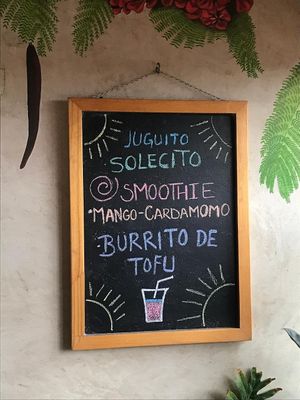 JUGUITO
SOLECITO
SMOOTHIE
*MANGO-CARDAMOMO
BURRITO DE
TOFU